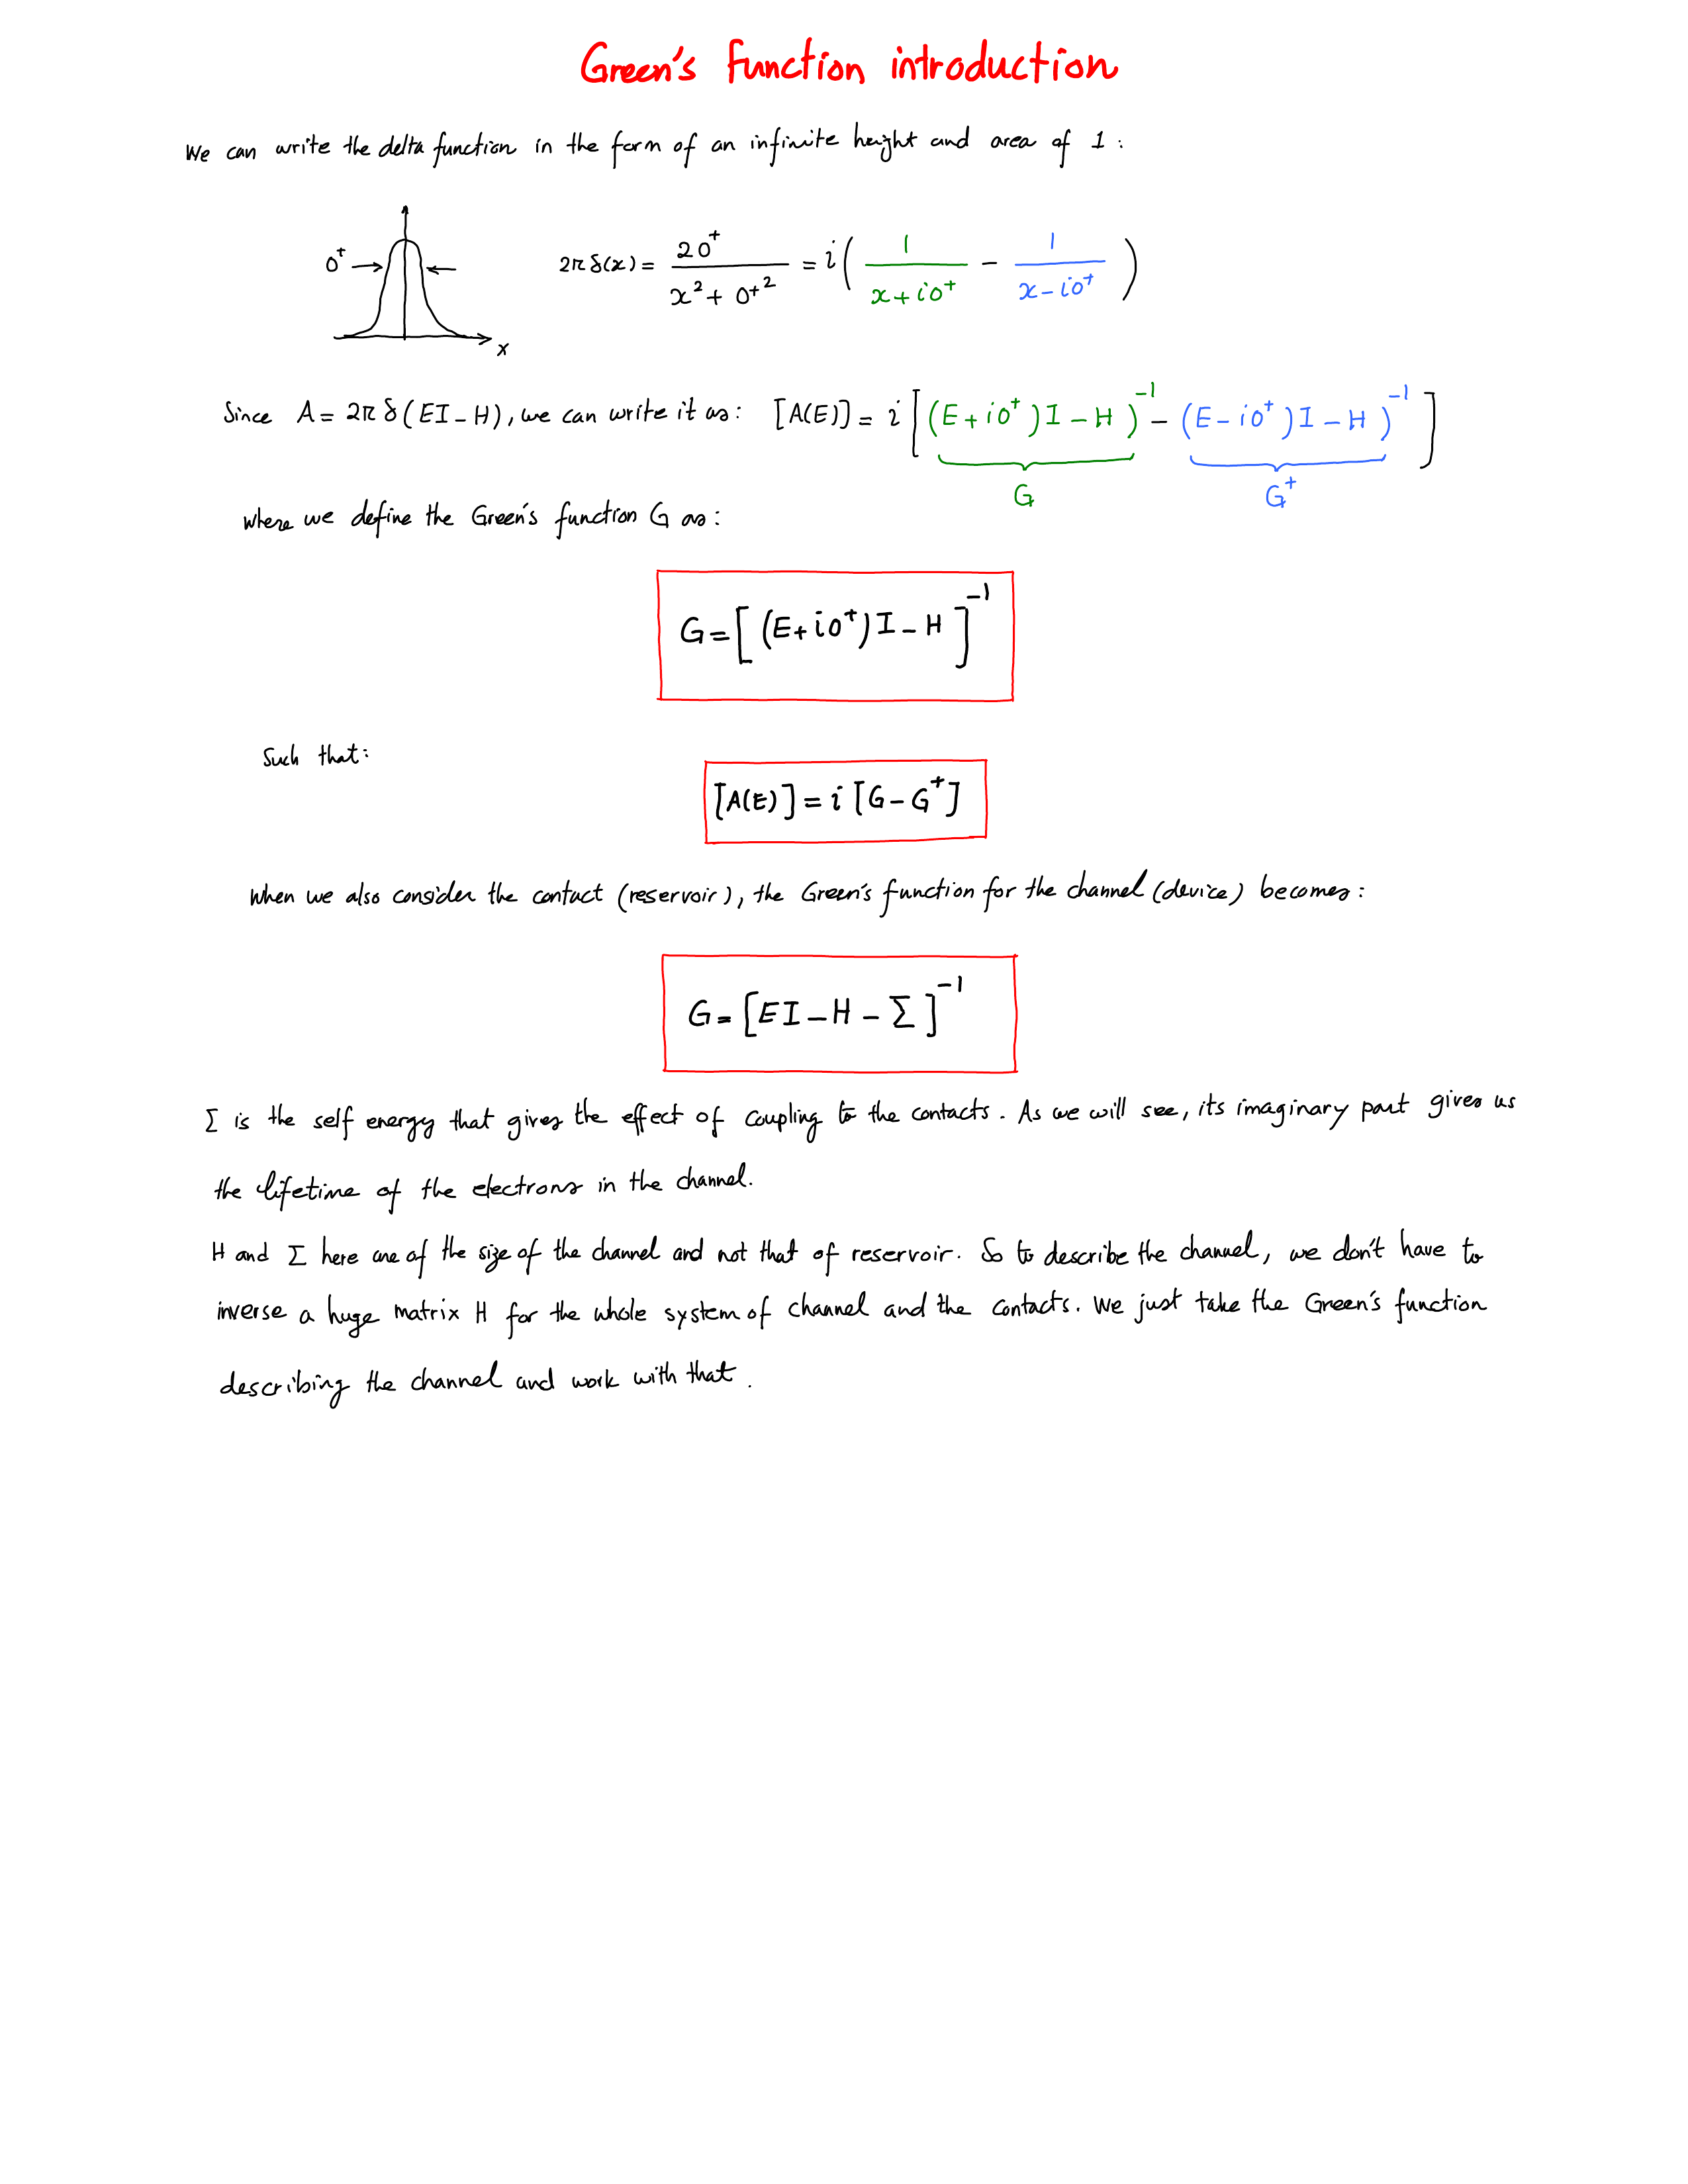 Green's function introduction
We can write the delta function in the form of an infinite height and area of 1 :
0⁺ → ← x
2π δ(x) = 20⁺ / (x² + 0⁺²) = i ( 1/(x+i0⁺) − 1/(x−i0⁺) )
Since A = 2π δ(EI − H), we can write it as: [A(E)] = i [ (E+i0⁺)I − H )⁻¹ − (E−i0⁺)I − H )⁻¹ ]
G G⁺
where we define the Green's function G as :
G = [ (E+i0⁺)I − H ]⁻¹
Such that:
[A(E)] = i [G − G⁺]
When we also consider the contact (reservoir), the Green's function for the channel (device) becomes :
G = [EI − H − Σ]⁻¹
Σ is the self energy that gives the effect of coupling to the contacts. As we will see, its imaginary part gives us
the lifetime of the electrons in the channel.
H and Σ here are of the size of the channel and not that of reservoir. So to describe the channel, we don't have to
inverse a huge matrix H for the whole system of channel and the contacts. We just take the Green's function
describing the channel and work with that.